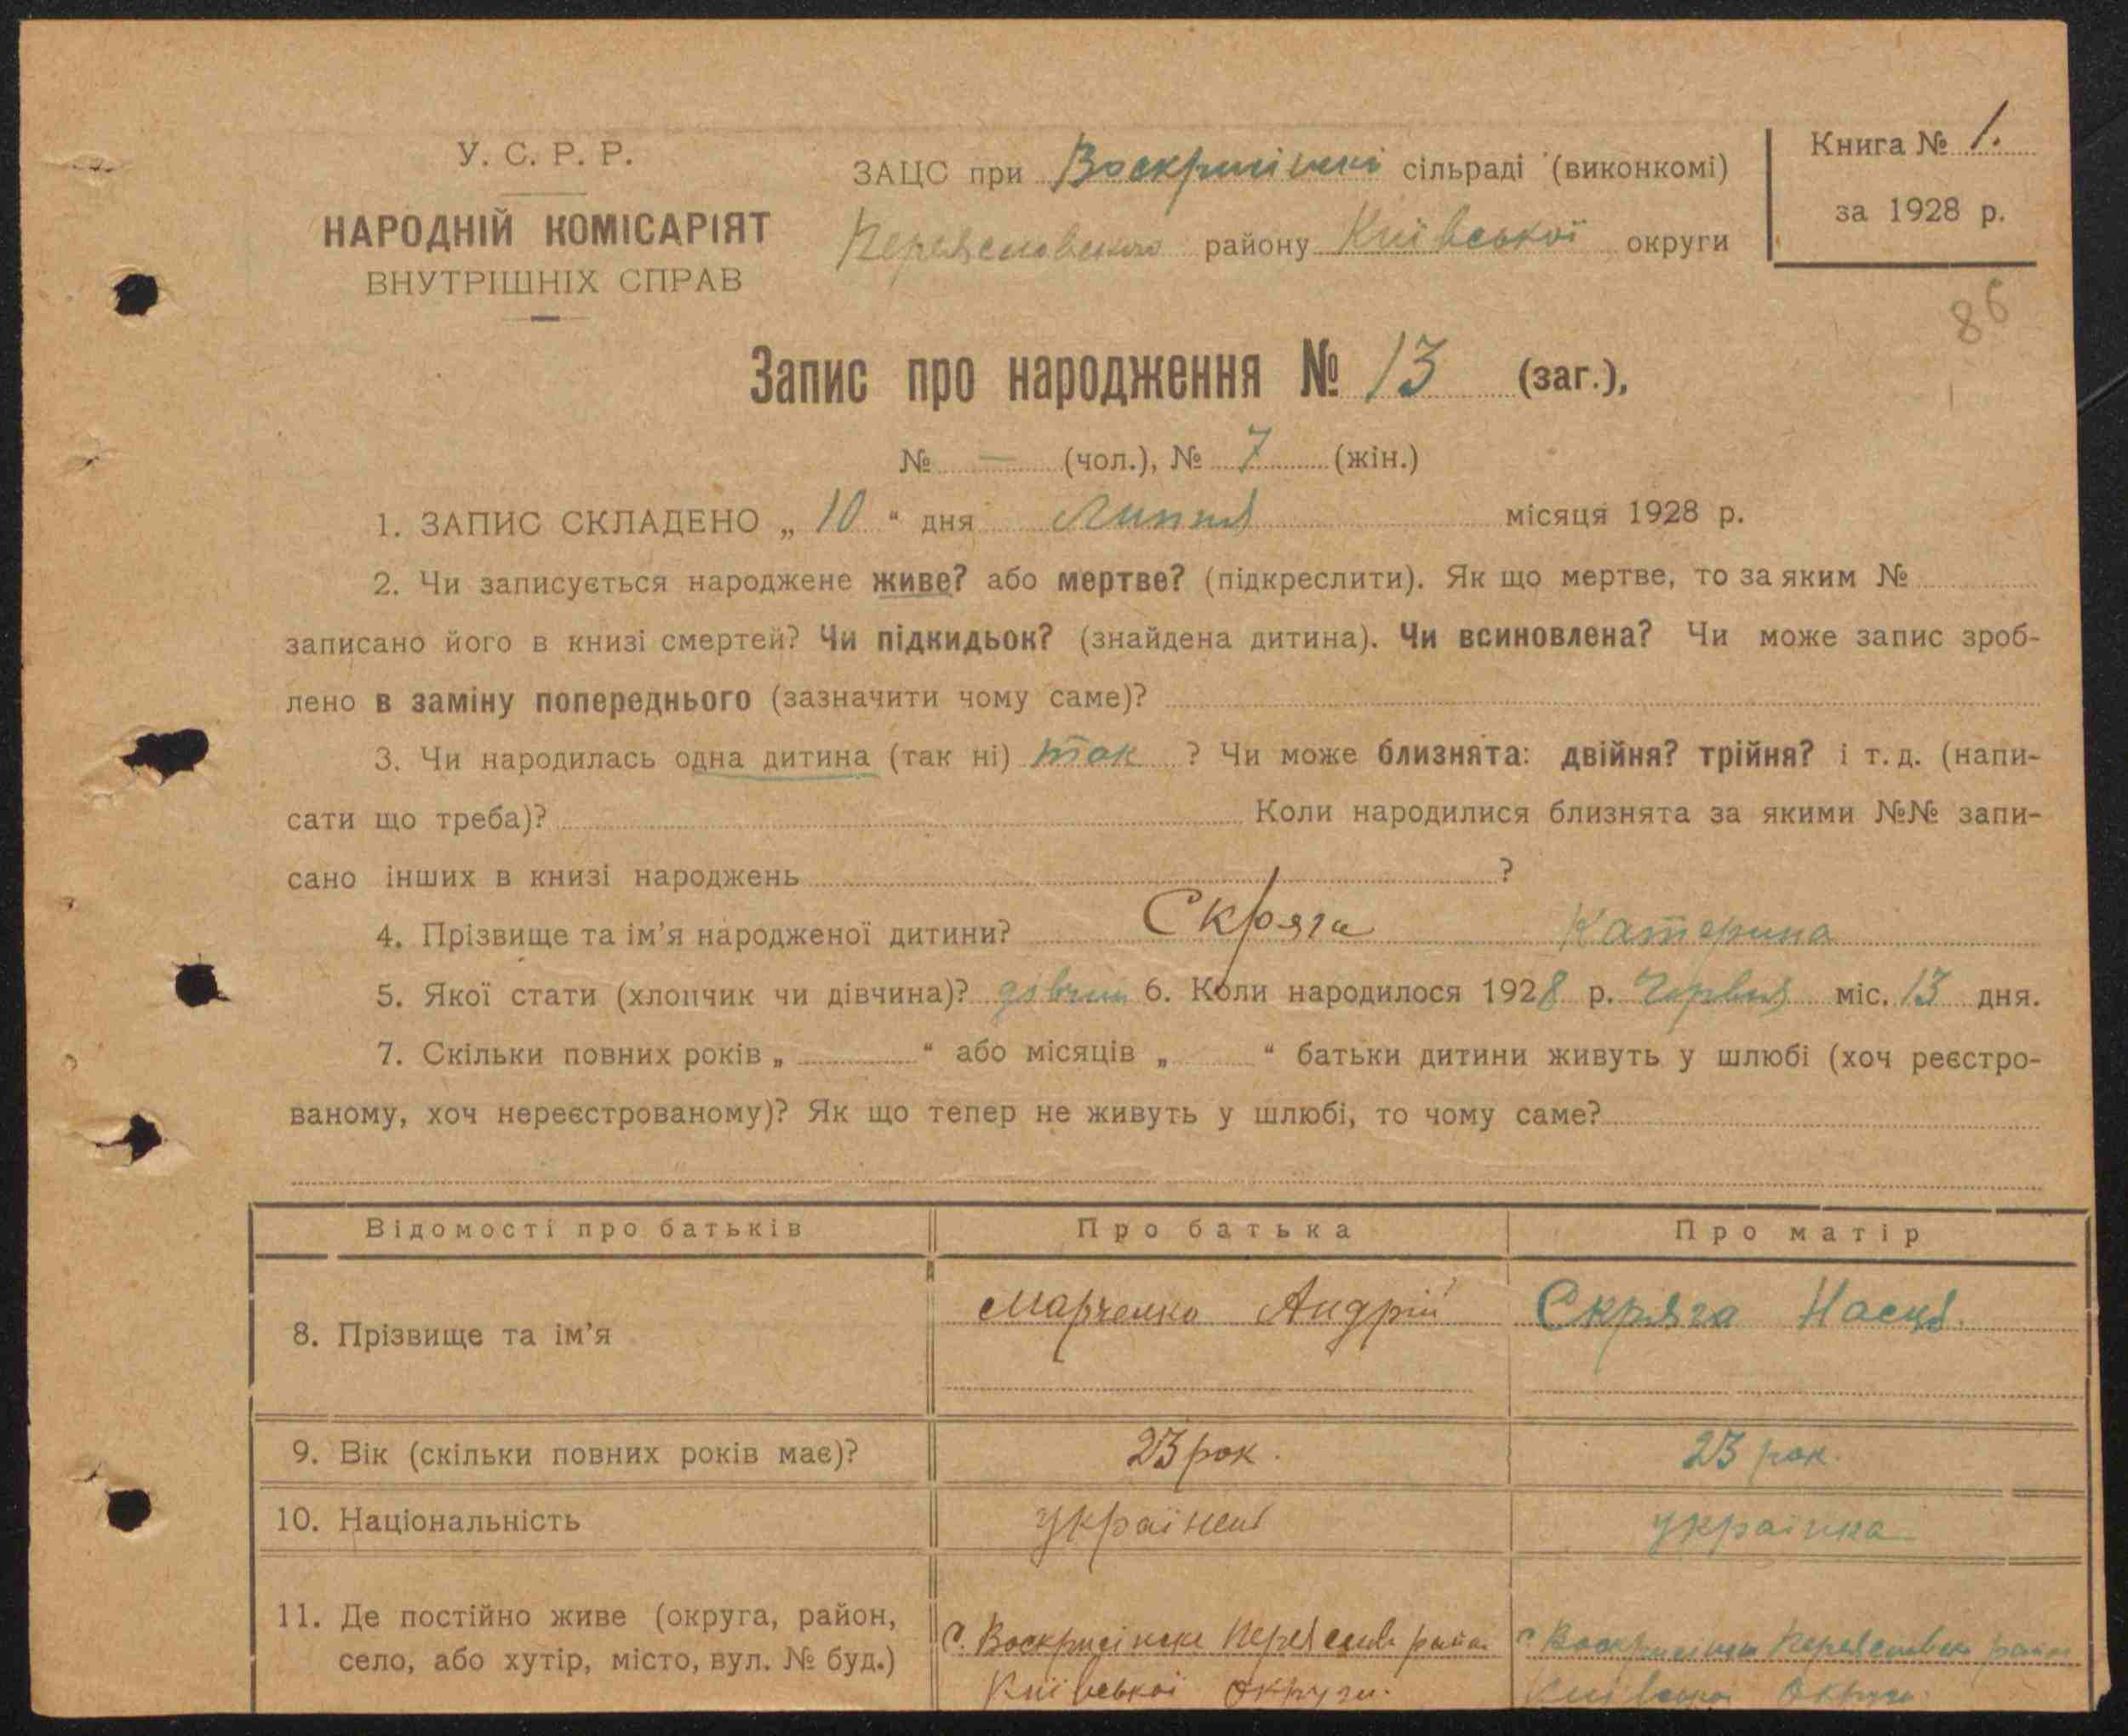 У. С. Р. Р.
НАРОДНІЙ КОМІСАРІЯТ
ВНУТРІШНІХ СПРАВ
ЗАЦС при Воскрисінські сільраді (виконкомі)
Переяславського району Київської округи
Книга № 1.
за 1928 р.
86
Запис про народження № 13 (заг.),
№ — (чол.), № 7 (жін.)
1. ЗАПИС СКЛАДЕНО „ 10 “ дня Липня місяця 1928 р.
2. Чи записується народжене живе? або мертве? (підкреслити). Як що мертве, то за яким №
записано його в книзі смертей? Чи підкидьок? (знайдена дитина). Чи всиновлена? Чи може запис зроб-
лено в заміну попереднього (зазначити чому саме)?
3. Чи народилась одна дитина (так ні) так ? Чи може близнята: двійня? трійня? і т. д. (напи-
сати що треба)? Коли народилися близнята за якими №№ запи-
сано інших в книзі народжень ?
4. Прізвище та ім’я народженої дитини? Скряга Катерина
5. Якої стати (хлопчик чи дівчина)? 6. Коли народилося 1928 р. Червня міс. 13 дня.
7. Скільки повних років „ “ або місяців „ “ батьки дитини живуть у шлюбі (хоч реєстро-
ваному, хоч нереєстрованому)? Як що тепер не живуть у шлюбі, то чому саме?
Відомості про батьків Про батька Про матір
8. Прізвище та ім’я Марченко Андрій Скряга Насця.
9. Вік (скільки повних років має)? 23 рок. 23 рок.
10. Національність українец українка
11. Де постійно живе (округа, район,
село, або хутір, місто, вул. № буд.)
с. Воскрисінське Переяславс район
Київської округи.
с. Воскрисінське Переяславськ район
Київської Округи.